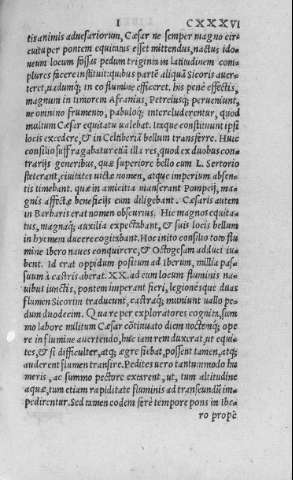 I CXXXVI
tis animis aduersariorum, Cæsar ne semper magno cir
cuitu per pontem equitatus esset mittendus, nactus ido=
neum locum fossas pedum triginta in latitudinem com=
plures facere instituit: quibus partem aliquā Sicoris auer=
teret, uadumq; in eo flumine efficeret. his penè effectis,
magnum in timorem Afranius, Petreiusq; perueniunt,
ne omnino frumento, pabuloq; intercluderentur, quod
multum Cæsar equitatu ualebat. Itaque constituunt ipsi
locis excedere, & in Celtiberiā bellum transferre. Huic
consilio suffragabatur etiā illa res, quod ex duobus con=
trarijs generibus, quæ superiore bello cum L. Sertorio
steterant, ciuitates uictæ nomen, atque imperium absen=
tis timebant. quæ in amicitia manserant Pompeij, ma=
gnis affectæ beneficijs eum diligebant. Cæsaris autem
in Barbaris erat nomen obscurius. Hic magnos equita=
tus, magnaq; auxilia expectabant, & suis locis bellum
in hyemem ducere cogitabant. Hoc inito consilio toto flu
mine Ibero naues conquirere, & Octogesam adduci iu=
bent. Id erat oppidum positum ad Iberum, millia pas=
suum à castris aberat. XX. ad eum locum fluminis na=
uibus iunctis, pontem imperant fieri, legionesque duas
flumen Sicorim traducunt, castraq; muniunt uallo pe=
dum duodecim. Quare per exploratores cognita, sum
mo labore militum Cæsar cōtinuato diem noctemq; ope
re in flumine auertendo, huc iam rem duxerat, ut equi=
tes, & si difficulter, atq; ægre fiebat, possent tamen, atq;
auderent flumen transire. Pedites uero tantummodo hu
meris, ac summo pectore extarent, ut, tum altitudine
aquæ, tum etiam rapiditate fluminis ad transeundū im=
pedirentur. Sed tamen eodem ferè tempore pons in Ibe=
ro propè